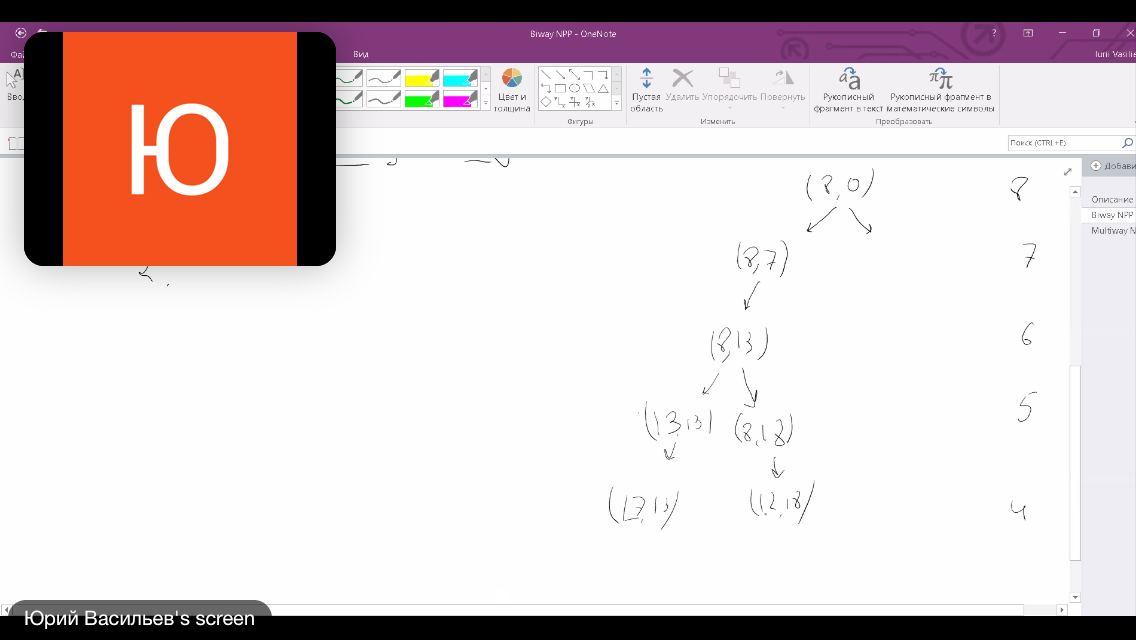 Biway NPP - OneNote
?
Iurii Vasilie
Фай
Вид
Ввод
Цвет и
толщина
Фигуры
Пустая
область
Удалить
Упорядочить
Повернуть
Изменить
Рукописный
фрагмент в текст
Рукописный фрагмент в
математические символы
Преобразовать
Поиск (CTRL+E)
Добави
Описание
Biway NPP
Multiway N
Ю
(8,0) 8
(8,7) 7
(8,13) 6
(13,13) (8,18) 5
(17,13) (12,18) 4
Юрий Васильев's screen